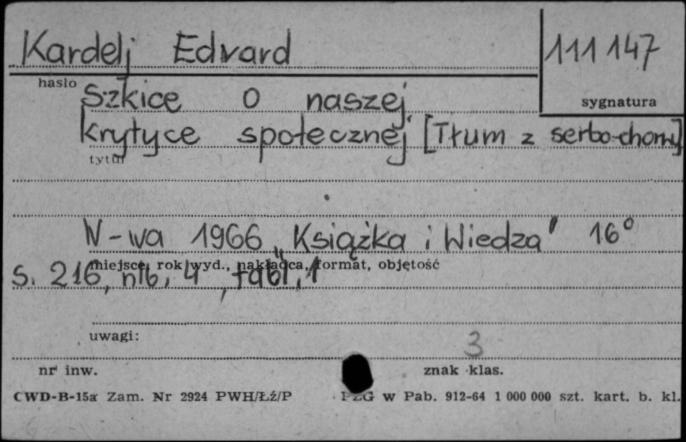 Kardelj Edvard
111 147
hasło
Szkice o naszej
sygnatura
krytyce społecznej [Tłum z serbo-chorw]
tytuł
W-wa 1966 "Książka i Wiedza" 16°
miejsce, rok wyd., nakładca, format, objętość
s. 216, nlb, 4, tabl, 1
uwagi:
3
nr inw.
znak klas.
CWD-B-15a Zam. Nr 2924 PWH/Łź/P
PZG w Pab. 912-64 1 000 000 szt. kart. b. kl.